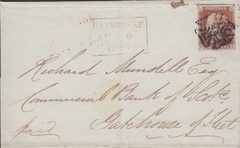 GATEHOUSE
Richard Mundell Esq
Commercial Bank of Scot.
Gatehouse of Fleet
paid